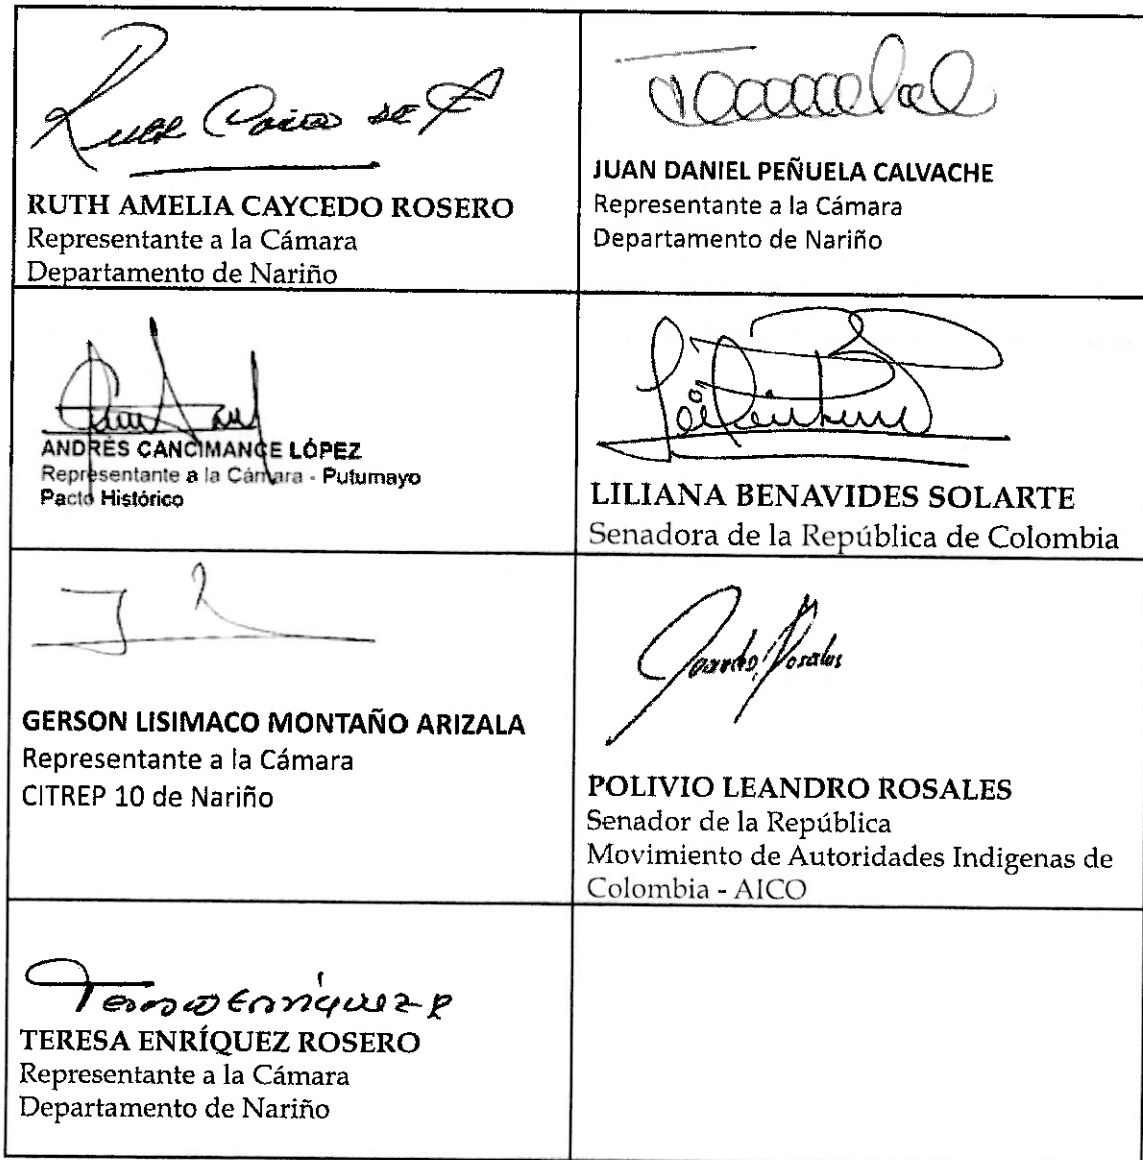 RUTH AMELIA CAYCEDO ROSERO
Representante a la Cámara
Departamento de Nariño
JUAN DANIEL PEÑUELA CALVACHE
Representante a la Cámara
Departamento de Nariño
ANDRÉS CANCIMANCE LÓPEZ
Representante a la Cámara - Putumayo
Pacto Histórico
LILIANA BENAVIDES SOLARTE
Senadora de la República de Colombia
GERSON LISIMACO MONTAÑO ARIZALA
Representante a la Cámara
CITREP 10 de Nariño
POLIVIO LEANDRO ROSALES
Senador de la República
Movimiento de Autoridades Indigenas de
Colombia - AICO
Teresa Enríquez R
TERESA ENRÍQUEZ ROSERO
Representante a la Cámara
Departamento de Nariño